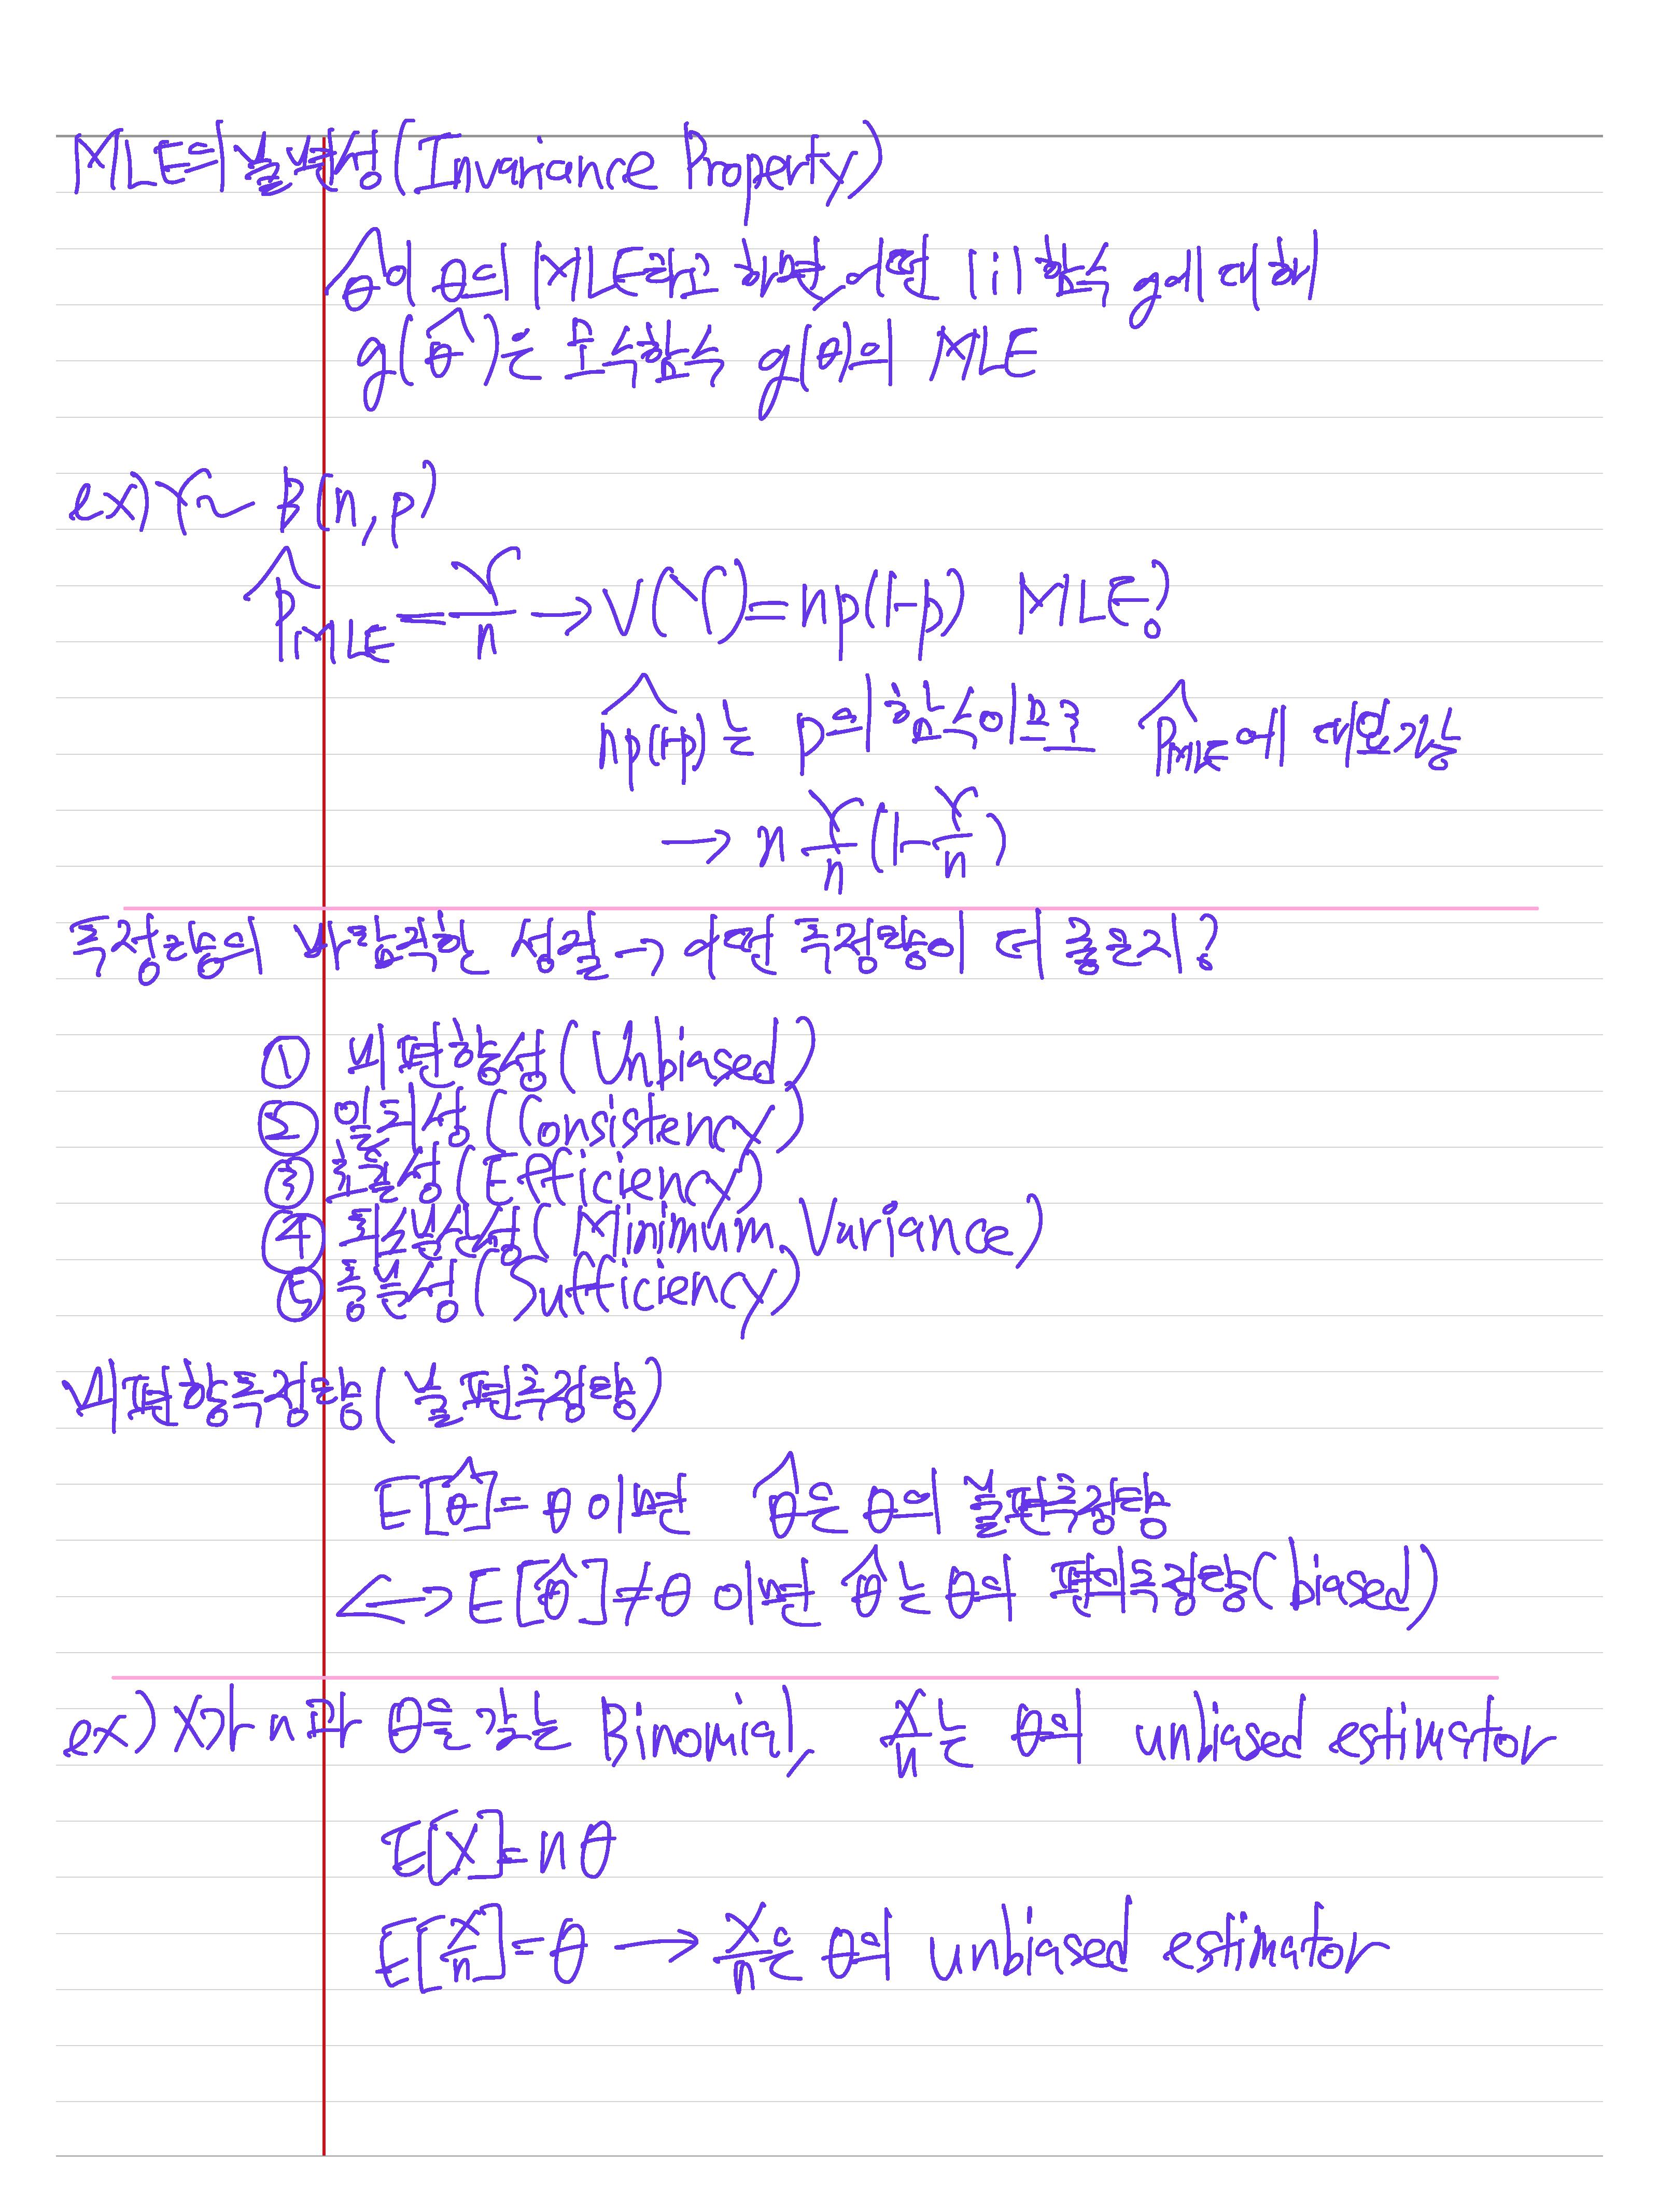 MLE의 불변성(Invariance Property)
θ̂이 θ의 MLE라고 하면, 어떤 1:1 함수 g에 대해
g(θ̂)는 모수함수 g(θ)의 MLE
ex) Y~ B(n,p)
p̂MLE = Y/n → V(Y)=np(1-p) MLE?
np(1-p)^는 p의 함수이므로 p̂MLE에 대입가능
→ n Y/n (1-Y/n)
추정량의 바람직한 성질 → 어떤 추정량이 더 좋은지?
① 비편향성(Unbiased)
② 일치성(Consistency)
③ 효율성(Efficiency)
④ 최소분산성(Minimum Variance)
⑤ 충분성(Sufficiency)
비편향추정량(불편추정량)
E[θ̂]=θ 이면 θ̂은 θ의 불편추정량
↔ E[θ̂]≠θ 이면 θ̂는 θ의 편의추정량(biased)
ex) X가 n과 θ을 갖는 Binomial, X/n는 θ의 unbiased estimator
E[X]=nθ
E[X/n]=θ → X/n은 θ의 unbiased estimator